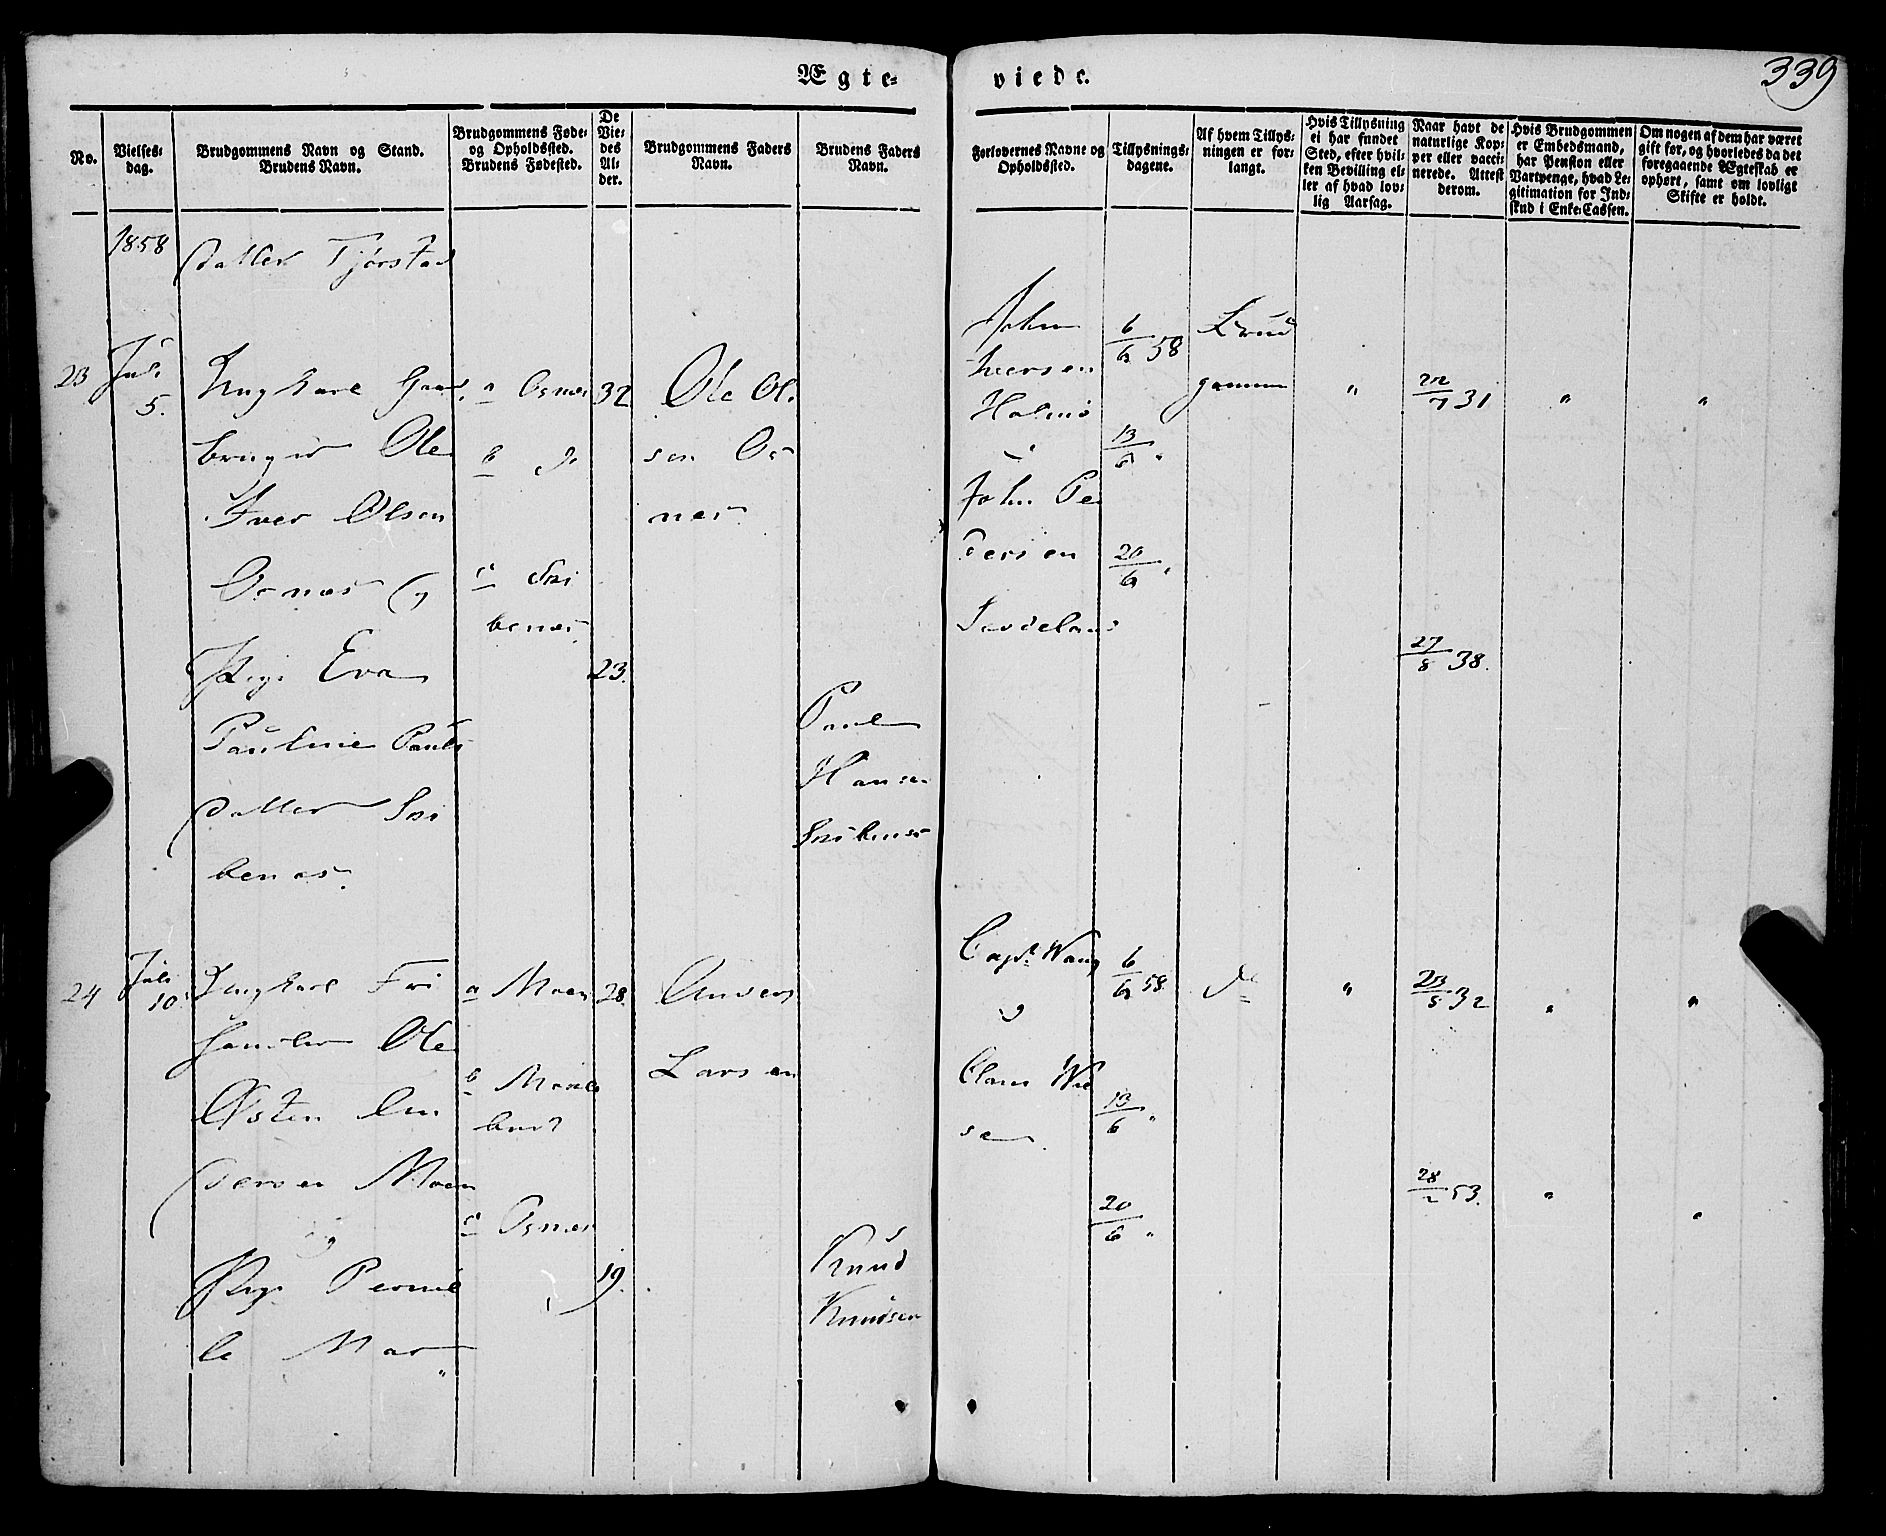 Ægte-
viede.
339
No.
Vielses-
dag.
Brudgommens Navn og Stand.
Brudens Navn.
Brudgommens Føde-
og Opholdssted.
Brudens Fødested.
De
Vie-
des
Al-
der.
Brudgommens Faders
Navn.
Brudens Faders
Navn.
Forlovernes Navne og
Opholdssted.
Tillysnings-
dagene.
Af hvem Tillys-
ningen er for-
langt.
Hvis Tillysning
ei har fundet
Sted, efter hvil-
ken Bevilling el-
ler af hvad lov-
lig Aarsag.
Naar havt de
naturlige Kop-
per eller vacci-
nerede. Attest
derom.
Hvis Brudgommen
er Embedsmand,
har Pension eller
Vartpenge, hvad Le-
gitimation for Ind-
skud i Enke-Cassen.
Om nogen af dem har været
gift før, og hvorledes da det
foregaaende Ægteskab er
ophørt, samt om lovligt
Skifte er holdt.
1858
datter Tjørstad
23
Juli
5.
Ungkarl Gaard
bruger Ole
Iver Olsen
Osnæs og
Pige Eva
Pauline Pauls
datter
benæs.
a Osnæs
b do
c
benæs.
32
23.
Ole Ol
sen Os
næs
Paul
Hansen
John
Iversen
Holmo
John Pe
dersen
6/6 58
13/6 "
20/6 "
Brud
gommen
"
22/7 31
27/8 38.
"
"
24
Juli
10.
Ungkarl Fri
handler Ole
Østen An
dersen Moen
og
Pige Pernil
le Mar
"
a Moen
b
c Osnæs
28.
19.
Anders
Larsen
Knud
Knudsen
Capt. Wang
og
Claus Wii
sen
6/6 58.
13/6 "
20/6 "
do
"
23/8 32
28/2 53.
"
"
"
"